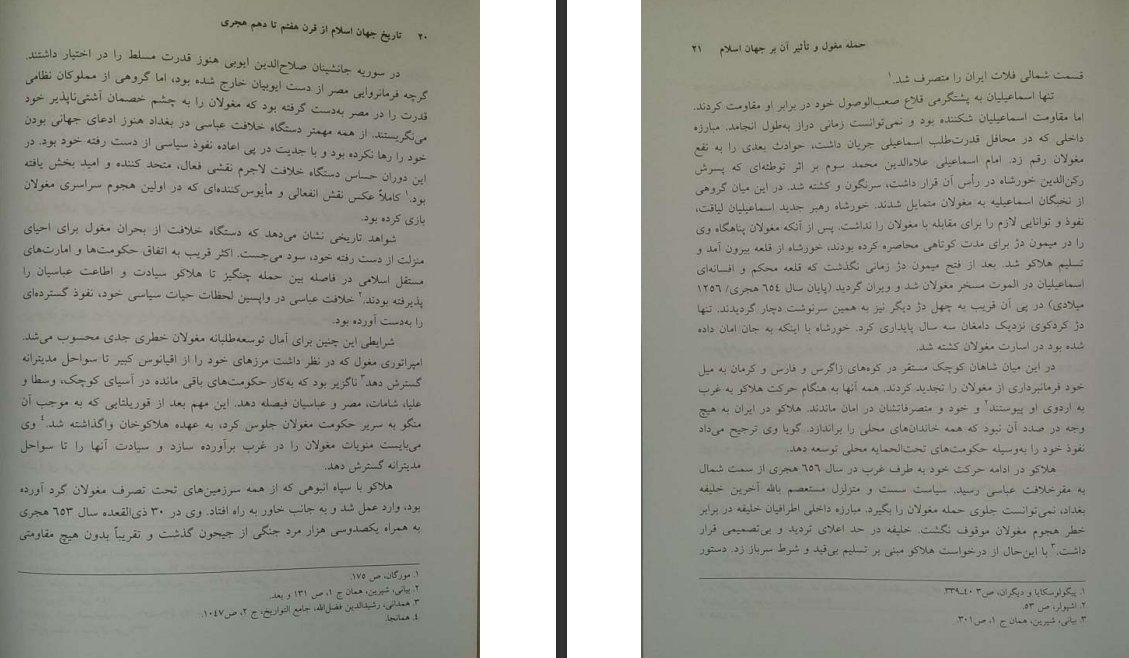 ۲۰ تاریخ جهان اسلام از قرن هفتم تا دهم هجری
در سوریه جانشینان صلاح‌الدین ایوبی هنوز قدرت مسلط را در اختیار داشتند.
گرچه فرمانروایی مصر از دست ایوبیان خارج شده بود، اما گروهی از مملوکان نظامی
قدرت را در مصر به‌دست گرفته بود که مغولان را به چشم خصمان آشتی‌ناپذیر خود
می‌نگریستند. از همه مهمتر دستگاه خلافت عباسی در بغداد هنوز ادعای جهانی بودن
خود را رها نکرده بود و با جدیت در پی اعاده نفوذ سیاسی از دست رفته خود بود. در
این دوران حساس دستگاه خلافت لاجرم نقشی فعال، متحد کننده و امید بخش یافته
بود.۱ کاملاً عکس نقش انفعالی و مأیوس‌کننده‌ای که در اولین هجوم سراسری مغولان
بازی کرده بود.
شواهد تاریخی نشان می‌دهد که دستگاه خلافت از بحران مغول برای احیای
منزلت از دست رفته خود، سود می‌جست. اکثر قریب به اتفاق حکومت‌ها و امارت‌های
مستقل اسلامی در فاصله بین حمله چنگیز تا هلاکو سیادت و اطاعت عباسیان را
پذیرفته بودند.۲ خلافت عباسی در واپسین لحظات حیات سیاسی خود، نفوذ گسترده‌ای
را به‌دست آورده بود.
شرایطی این چنین برای آمال توسعه‌طلبانه مغولان خطری جدی محسوب می‌شد.
امپراتوری مغول که در نظر داشت مرزهای خود را از اقیانوس کبیر تا سواحل مدیترانه
گسترش دهد۳ ناگزیر بود که به‌کار حکومت‌های باقی مانده در آسیای کوچک، وسطا و
علیا، شامات، مصر و عباسیان فیصله دهد. این مهم بعد از قوریلتایی که به موجب آن
منگو به سریر حکومت مغولان جلوس کرد، به عهده هلاکوخان واگذاشته شد.۴ وی
می‌بایست منویات مغولان را در غرب برآورده سازد و سیادت آنها را تا سواحل
مدیترانه گسترش دهد.
هلاکو با سپاه انبوهی که از همه سرزمین‌های تحت تصرف مغولان گرد آورده
بود، وارد عمل شد و به جانب خاور به راه افتاد. وی در ۳۰ ذی‌القعده سال ٦٥٣ هجری
به همراه یکصدوسی هزار مرد جنگی از جیحون گذشت و تقریباً بدون هیچ مقاومتی
۱. مورگان، ص ۱۷۵.
۲. بیانی، شیرین، همان ج ۱، ص ۱۳۱ و بعد.
۳. همدانی، رشیدالدین فضل‌الله، جامع التواریخ، ج ۲، ص۱۰۴۷.
٤. همانجا.
حمله مغول و تأثیر آن بر جهان اسلام ۲۱
قسمت شمالی فلات ایران را متصرف شد.۱
تنها اسماعیلیان به پشتگرمی قلاع صعب‌الوصول خود در برابر او مقاومت کردند.
اما مقاومت اسماعیلیان شکننده بود و نمی‌توانست زمانی دراز به‌طول انجامد. مبارزه
داخلی که در محافل قدرت‌طلب اسماعیلی جریان داشت، حوادث بعدی را به نفع
مغولان رقم زد. امام اسماعیلی علاءالدین محمد سوم بر اثر توطئه‌ای که پسرش
رکن‌الدین خورشاه در رأس آن قرار داشت، سرنگون و کشته شد. در این میان گروهی
از نخبگان اسماعیلیه به مغولان متمایل شدند. خورشاه رهبر جدید اسماعیلیان لیاقت،
نفوذ و توانایی لازم را برای مقابله با مغولان را نداشت. پس از آنکه مغولان پناهگاه وی
را در میمون دژ برای مدت کوتاهی محاصره کرده بودند، خورشاه از قلعه بیرون آمد و
تسلیم هلاکو شد. بعد از فتح میمون دژ زمانی نگذشت که قلعه محکم و افسانه‌ای
اسماعیلیان در الموت مسخر مغولان شد و ویران گردید (پایان سال ٦٥٤ هجری/ ۱۲۵٦
میلادی) در پی آن قریب به چهل دژ دیگر نیز به همین سرنوشت دچار گردیدند. تنها
دژ کردکوی نزدیک دامغان سه سال پایداری کرد. خورشاه با اینکه به جان امان داده
شده بود در اسارت مغولان کشته شد.
در این میان شاهان کوچک مستقر در کوه‌های زاگرس و فارس و کرمان به میل
خود فرمانبرداری از مغولان را تجدید کردند. همه آنها به هنگام حرکت هلاکو به غرب
به اردوی او پیوستند۲ و خود و متصرفاتشان در امان ماندند. هلاکو در ایران به هیچ
وجه در صدد آن نبود که همه خاندان‌های محلی را براندازد. گویا وی ترجیح می‌داد
نفوذ خود را به‌وسیله حکومت‌های تحت‌الحمایه محلی توسعه دهد.
هلاکو در ادامه حرکت خود به طرف غرب در سال ٦٥٦ هجری از سمت شمال
به مقرخلافت عباسی رسید. سیاست سست و متزلزل مستعصم بالله آخرین خلیفه
بغداد، نمی‌توانست جلوی حمله مغولان را بگیرد. مبارزه داخلی اطرافیان خلیفه در برابر
خطر هجوم مغولان موقوف نگشت. خلیفه در حد اعلای تردید و بی‌تصمیمی قرار
داشت.۳ با این‌حال از درخواست هلاکو مبنی بر تسلیم بی‌قید و شرط سرباز زد. دستور
۱. پیگولوسکایا و دیگران، ص۳ ۴۰ـ۳۳۹.
۲. اشپولر، ص ۵۳.
۳. بیانی، شیرین، همان ج ۱، ص۳۰۱.